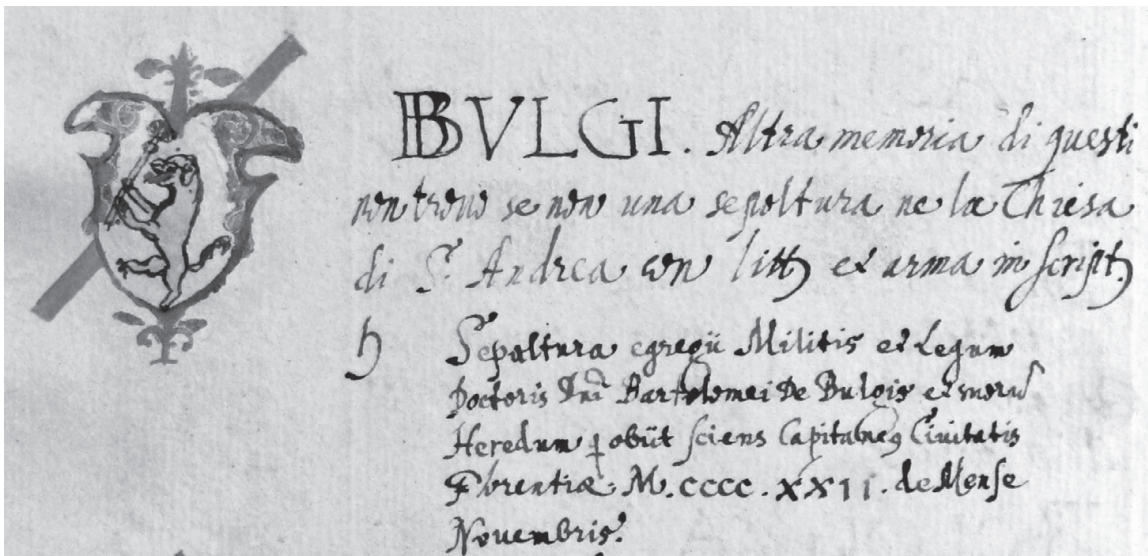 BVLGI. Altra memoria di questi
non trouo se non una sepoltura ne la Chiesa
di S. Andrea con litt et arma in script
Sepaltura egregii Militis et Legum
Doctoris Dni Bartolomei De Bulgis et
Heredum obiit sciens Capitaneus Ciuitatis
Florentiæ. M. CCCC. XXII. de Mense
Nouembris.